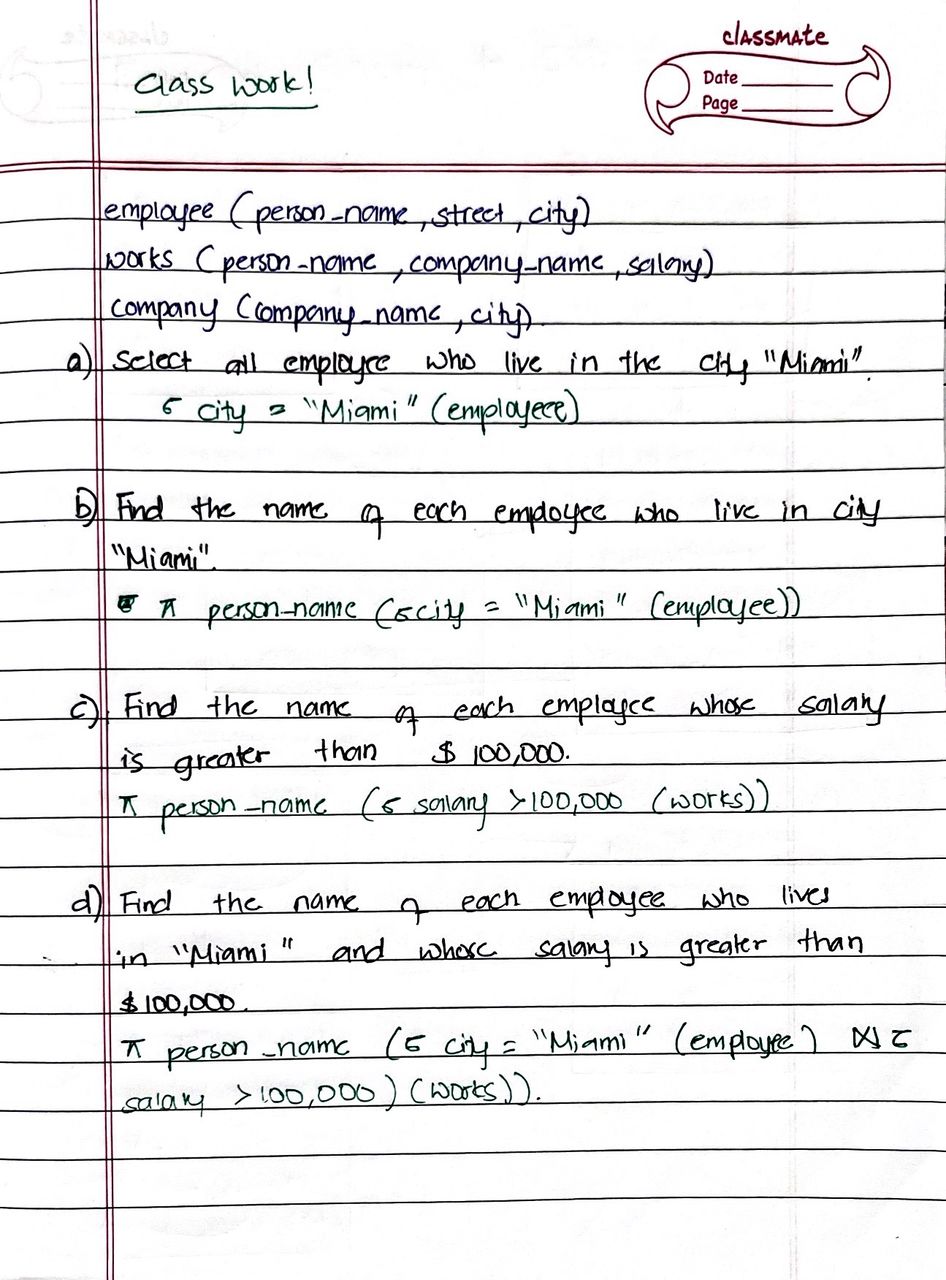 classmate
Date
Page
Class Work!
employee (person_name, street, city)
works (person_name, company_name, salary)
company (company_name, city)
a) Select all employee who live in the city "Miami".
σ city = "Miami" (employeee)
b) Find the name of each employee who live in city
"Miami".
π person_name (σ city = "Miami" (employee))
c) Find the name of each employee whose salary
is greater than $ 100,000.
π person_name (σ salary >100,000 (works))
d) Find the name of each employee who lives
in "Miami" and whose salary is greater than
$100,000.
π person_name (σ city = "Miami" (employee) ⋈ σ
salary >100,000) (works)).